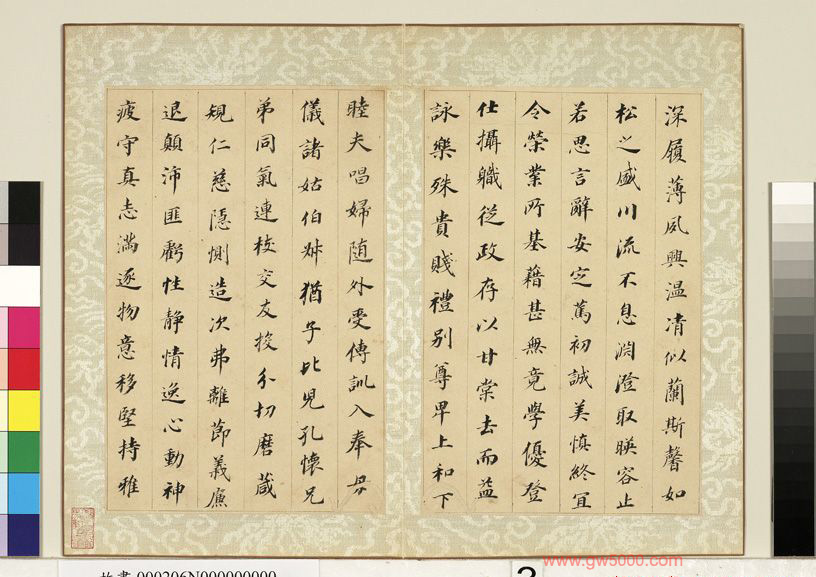 深履薄夙興温凊似蘭斯馨如
松之盛川流不息淵澄取暎容止
若思言辭安定篤初誠美慎終宜
令榮業所基藉甚無竟學優登
仕攝職從政存以甘棠去而益
詠樂殊貴賤禮別尊卑上和下
睦夫唱婦随外受傅訓入奉母
儀諸姑伯叔猶子比兒孔懷兄
弟同氣連枝交友投分切磨葴
規仁慈隱惻造次弗離節義廉
退顛沛匪虧性静情逸心動神
疲守真志滿逐物意移堅持雅
www.gw5000.com